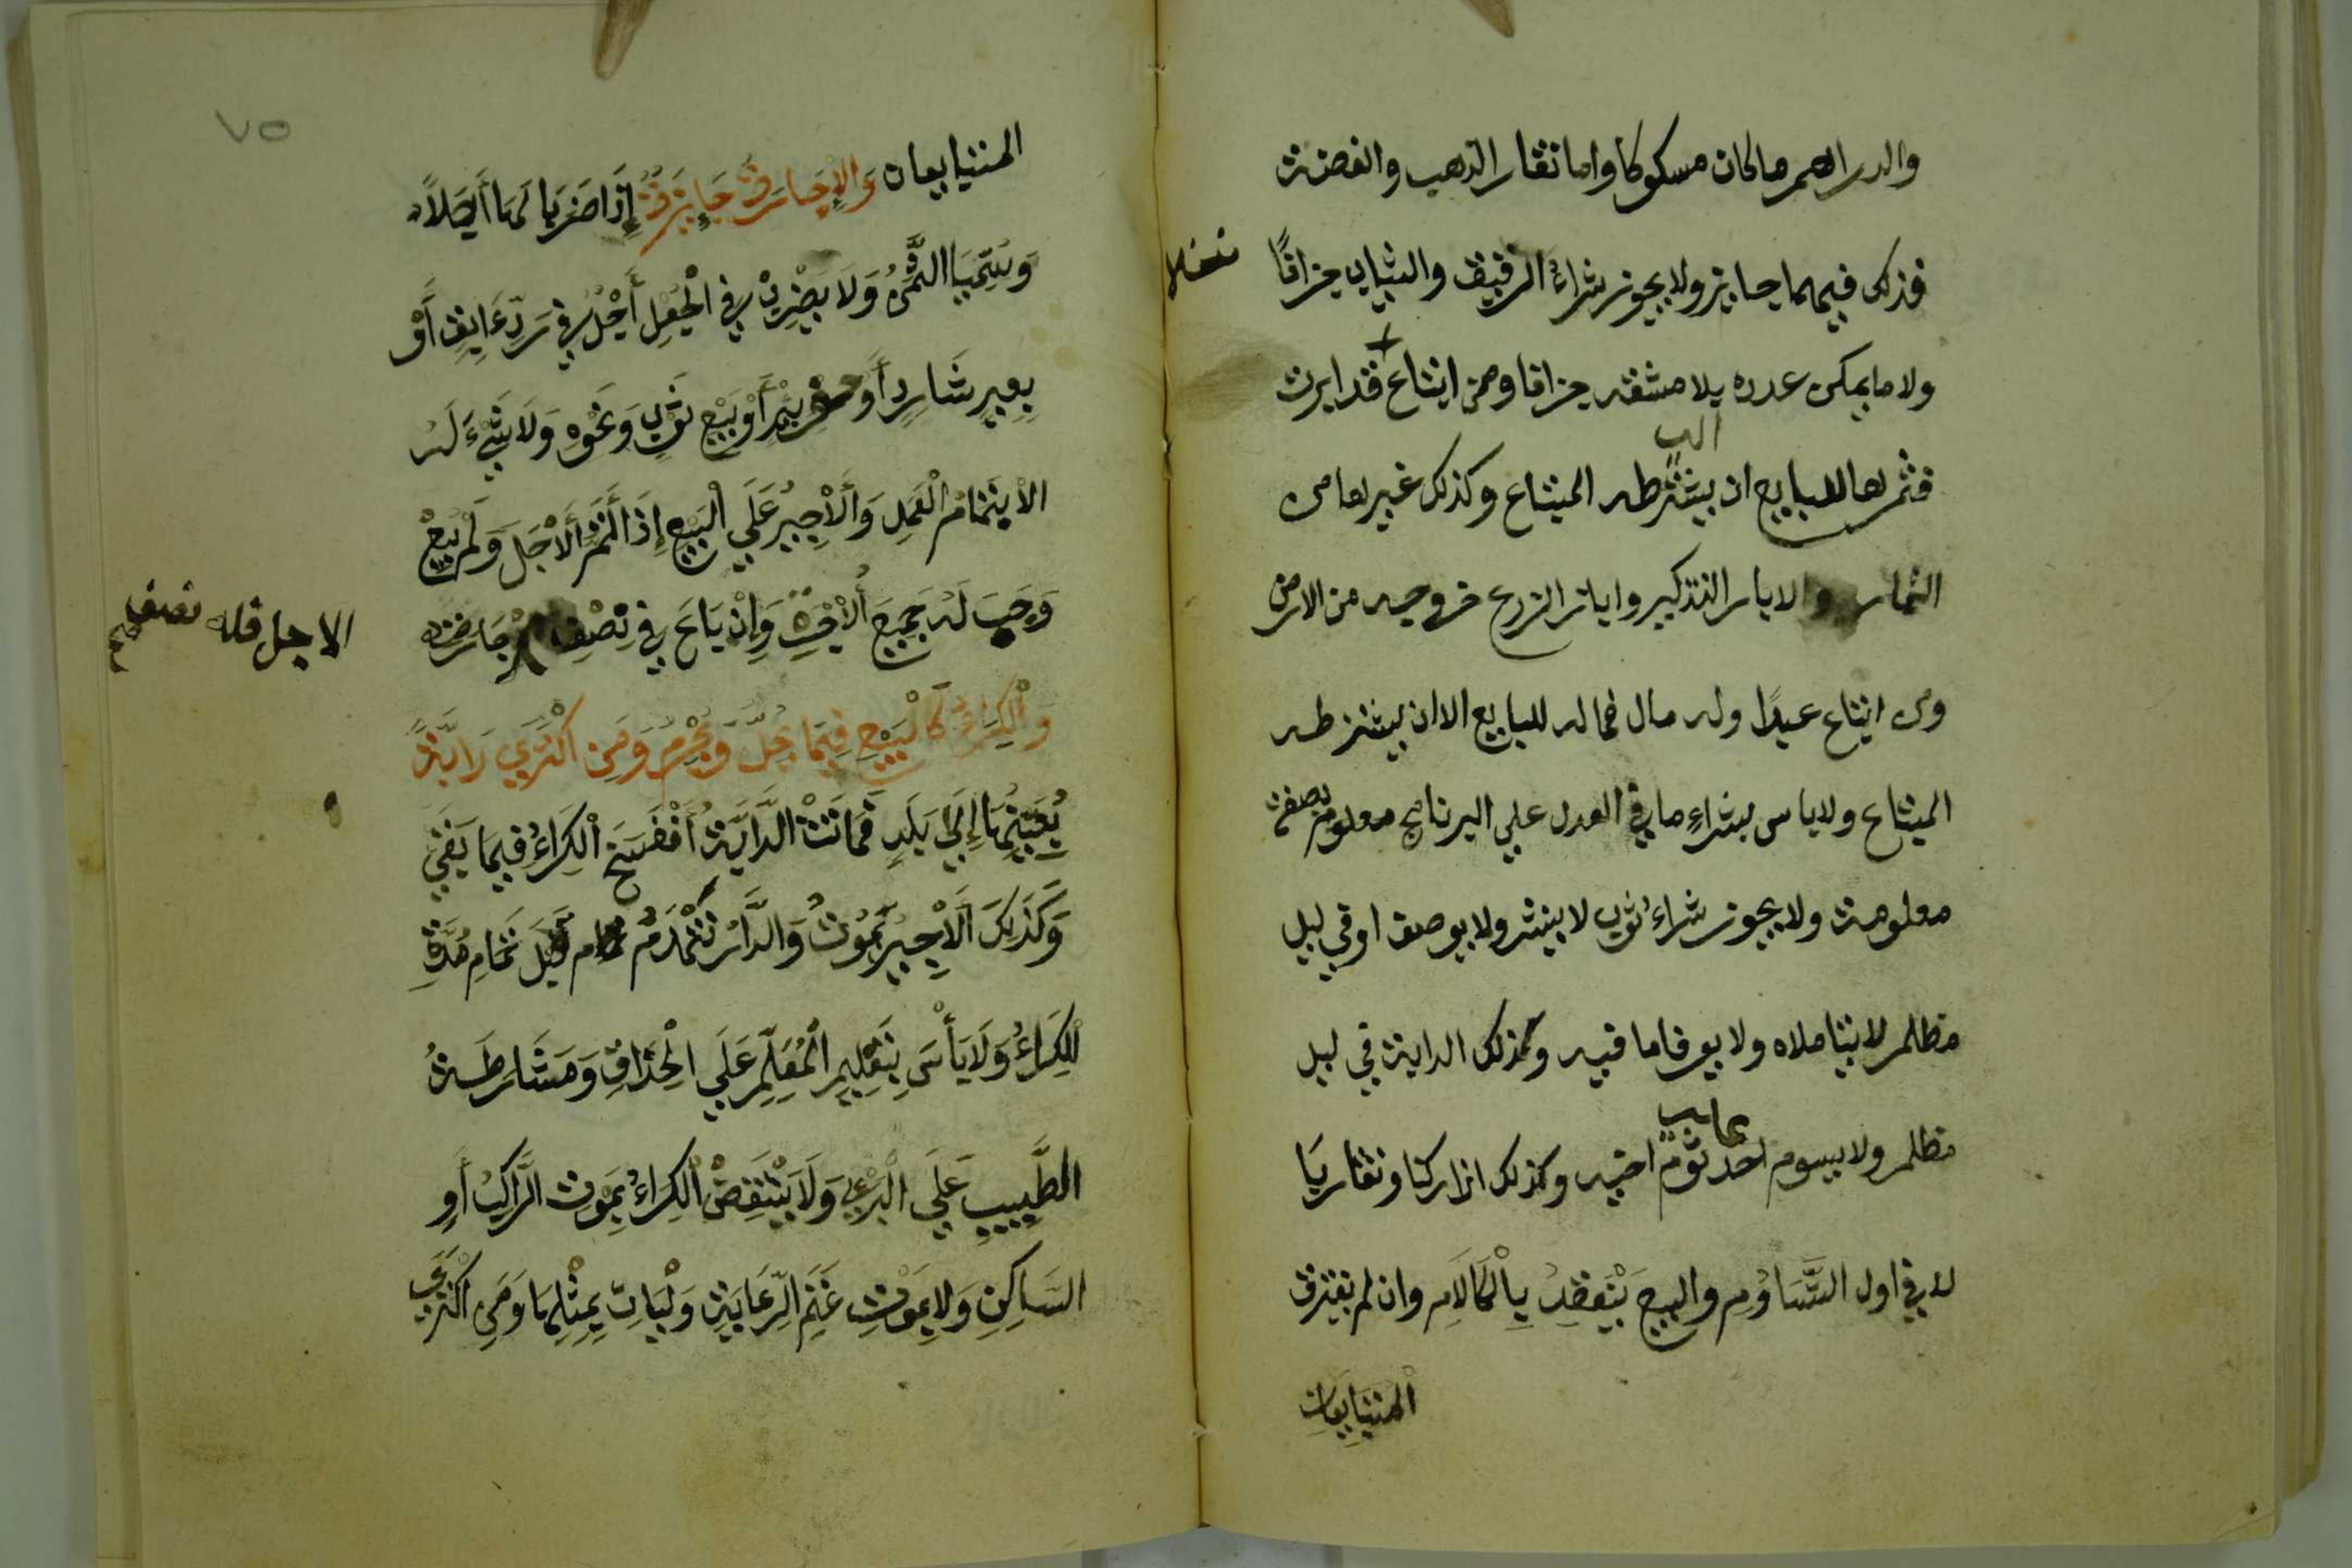 والدراهم ما كان مسكوكا واما نقار الذهب والفضة
فذلك فيهما جايز ولا يجوز شراء الرقيق والثياب جزافًا
ولا ما يمكن عدده بلا مشقة جزافا ومن ابتاع نخلا قد ابرت
فثمرها للبايع ان يشترطه المبتاع وكذلك غيرها من
الثمار والابار التذكير وابار الزرع خروجه من الارض
ومن ابتاع عبدًا وله مال فماله للبايع الا ان يشترطه
المبتاع ولا باس بشراءِ ما في العدل علي البرنامج بصفة معلوم
معلومة ولا يجوز شراءُ ثوب لا ينشر ولا يوصف او في ليل
مظلم لا يتاملاه ولا يعرفا ما فيه وكذلك الدابة في ليل
مظلم ولا يسوم احد علي سوم اخيه وكذلك اذا ركنا وتقاربَا
لا في اول التَّسَاوُمِ والبيع يَنْعَقِدُ بِالْكَلَامِ وان لم يفترق
الْمُتَبَايِعَانِ
٧٥
المتبايعان وَالْإِجَارَةُ جَايِزَةٌ إِذَا ضَرَبَا لَهَا أَجَلاً
وَسَمَّيَا الثَّمَنَ وَلَا يُضْرَبُ فِي الْجُعْلِ أَجْلٌ فِي رَدِّ ءَابِقٍ أَوْ
بَعِيرٍ شَارِدٍ أَو حَفْرِ بِيْرٍ أَوْ بَيْعِ ثَوْبٍ وَنَحْوِهِ وَلَا شَيْءَ لَهُ
الا بِتَمَامِ الْعَمَلِ وَالْأَجِيرُ عَلَي الْبَيْعِ إِذَا تَمَّ الْأَجَلُ وَلَمْ يَبِعْ
وَجَبَ لَهُ جَمِيعُ الْأُجْرَةِ وَإِنْ بَاعَ فِي نِصْفِ
الاجل فله نصف
وَالْكِرَاءُ كَالْبَيْعِ فِيمَا يَحِلُّ وَيَحْرُمُ وَمَنِ اكْتَرَي دَابَّةً
بِعَيْنِهَا إِلَي بَلَدٍ فَمَاتَتْ الدَّابَةُ أنْفَسَخَ الْكِرَاءُ فِيمَا بَقِيَ
وَكَذَلِكَ الْأَجِيرُ يَمُوتُ وَالدَّارُ تَنْهَدِمُ قَبْلَ تَمَامِ مُدَّةِ
الْكِرَاءُ وَلَا بَأْسَ بِتَعْلِيمِ الْمُعَلِّمِ عَلَي الْحِذَاقِ وَمَشَارَطَةُ
الطَّبِيبِ عَلَي الْبُرْءِ وَلَا يَنْتَقِضُ الْكِرَاءُ بِمَوْتِ الرَّاكِبِ أَوِ
السَّاكِنِ وَلَا بِمَوْتِ غَنَمِ الرِّعَايَةِ وَلْيَاتِ بِمِثْلِهَا وَمَنِ اكْتَرَي